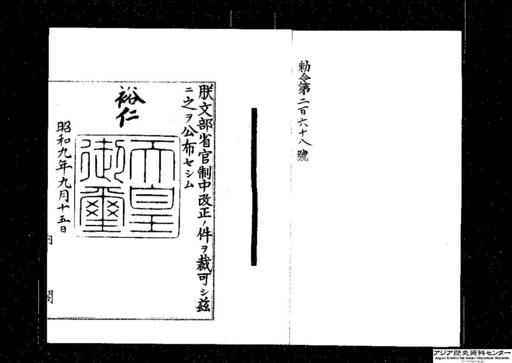 勅令第二百六十八號
朕文部省官制中改正ノ件ヲ裁可シ茲
ニ之ヲ公布セシム
裕仁
天皇
御璽
昭和九年九月十五日
内閣
アジア歴史資料センター
Japan Center for Asian Historical Records